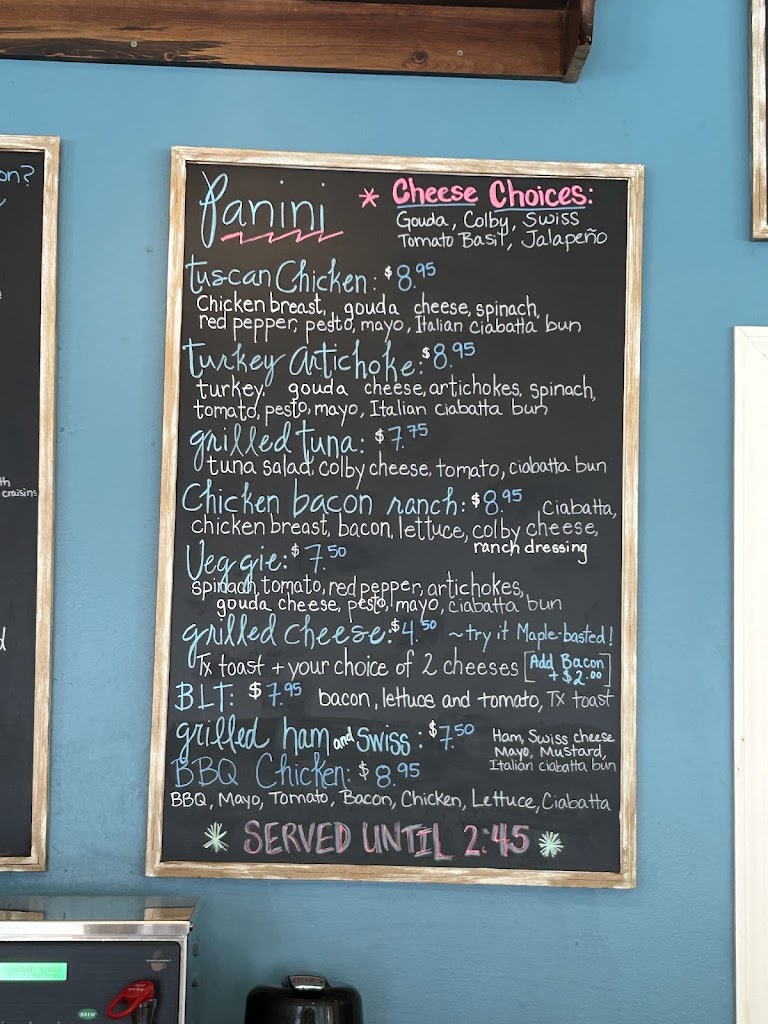 on?
th
craisins
d
Panini
* Cheese Choices:
Gouda, Colby, Swiss
Tomato Basil, Jalapeño
tuscan Chicken: $8.95
Chicken breast, gouda cheese, spinach,
red pepper, pesto, mayo, Italian ciabatta bun
turkey artichoke: $8.95
turkey, gouda cheese, artichokes, spinach,
tomato, pesto, mayo, Italian ciabatta bun
grilled tuna: $7.75
tuna salad, colby cheese, tomato, ciabatta bun
Chicken bacon ranch: $8.95 Ciabatta,
chicken breast, bacon, lettuce, colby cheese,
ranch dressing
Veggie: $7.50
spinach, tomato, red pepper, artichokes,
gouda cheese, pesto, mayo, ciabatta bun
grilled cheese: $4.50 ~try it Maple-basted!
Tx toast + your choice of 2 cheeses [Add Bacon
+ $2.00]
BLT: $7.95 bacon, lettuce and tomato, Tx toast
grilled ham and Swiss: $7.50 Ham, Swiss cheese
Mayo, Mustard,
Italian ciabatta bun
BBQ Chicken: $8.95
BBQ, Mayo, Tomato, Bacon, Chicken, Lettuce, Ciabatta
* SERVED UNTIL 2:45 *
BREW